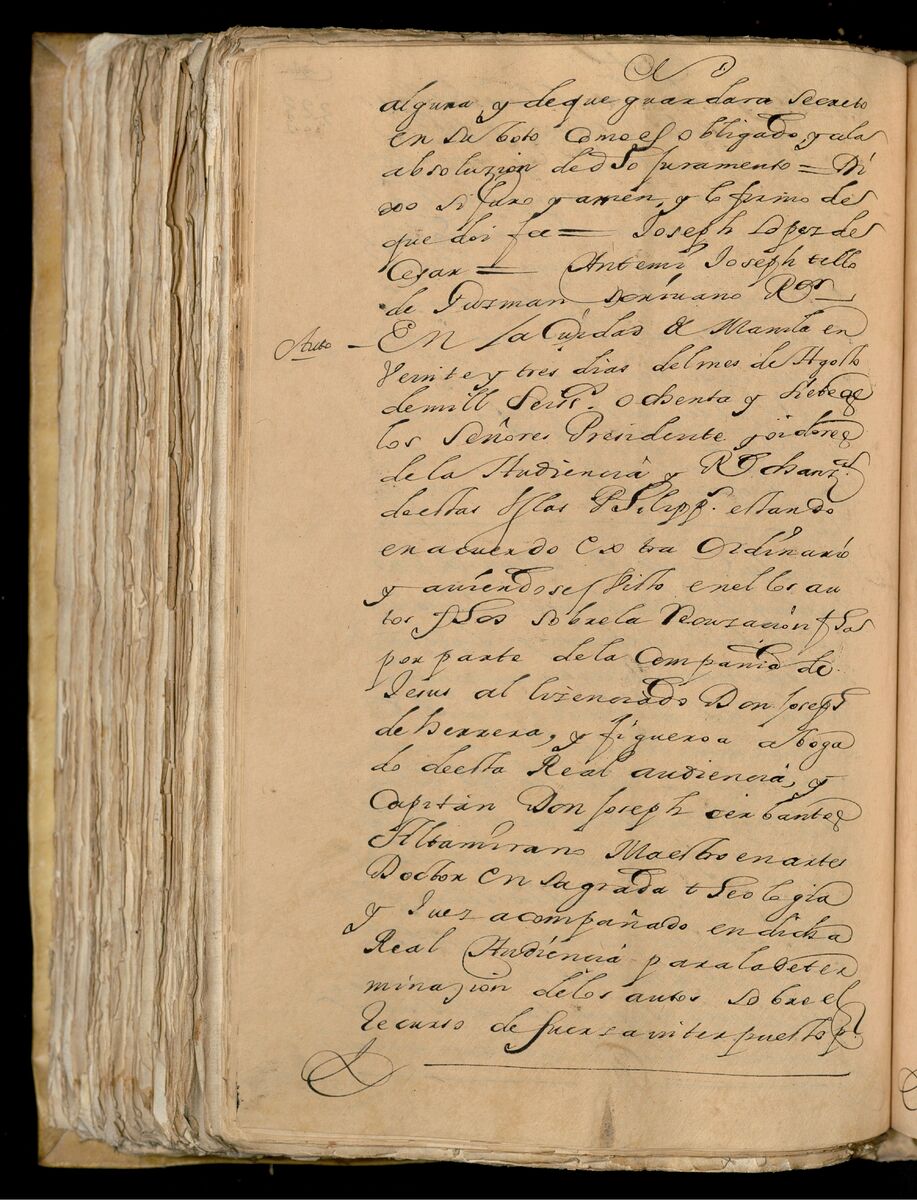 alguna, y de que guardara secreto
en su boto como es obligado, y a la
absoluzion de dho juramento = Di
xo si juro y amen, y lo firmo de
que doi fee = Joseph Lopez de
Cesar = Antemi Joseph tello
de Guzman escriuano Ror
Auto - En la Ciudad de Manila en
Veinte y tres dias del mes de Agosto
de mill Seisso. ochenta y siete as
los Señores Presidente y oidores
de la Audiencia y Rl chanza.
de estas Yslas Philipps. estando
en acuerdo extra Ordinario
y auiendose visto en el los au
tos fhos sobre la Recuzacion fha
por parte de la Compañia de
Jesus al lizenciado Don Joseph
de herrera, y figueroa aboga
do de esta Real audiencia, y
Capitan Don Joseph cerbantes
Altamirano Maestro en artes
Doctor en sagrada theologia
y Juez acompañado en dicha
Real Audiencia para la deter
minazion de los autos sobre el
recurso de fuersa interpuesto pr.